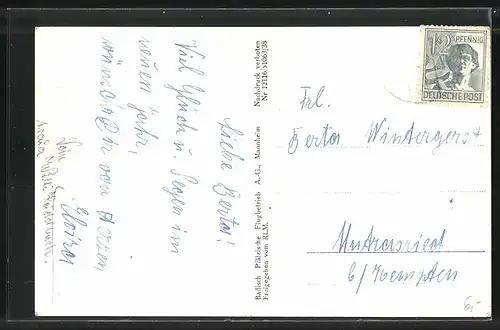 Liebe Berta!
Viel Glück u. Segen im
neuen Jahr,
wünscht Dir von Herzen
Nachdruck verboten
Nr. 12116/51063/38
Badisch Pfälzische Flugbetrieb A.-G., Mannheim
Freigegeben vom RLM.
12 PFENNIG
DEUTSCHE POST
Frl.
Berta Wintergerst
Untrasried
b/Kempten
6,-